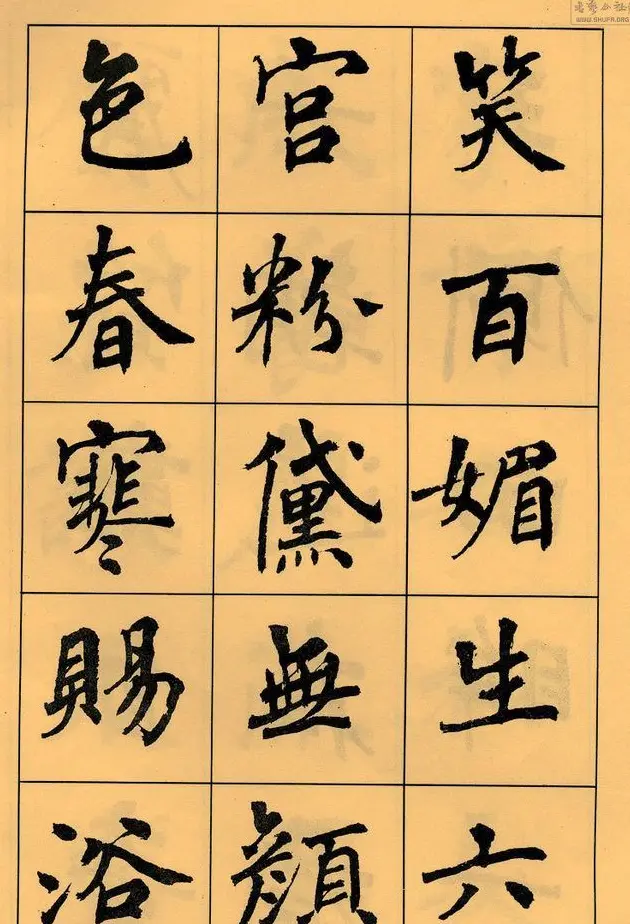 笑百媚生六
宮粉黛無顏
色春寒賜浴
WWW.SHUFA.ORG